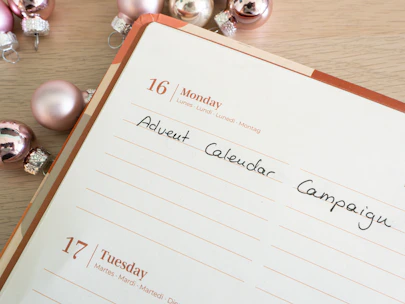 16 Monday
Lunes · Lundi · Lunedì · Montag
Advent Calendar Campaign
17 Tuesday
Martes · Mardi · Martedì · Die